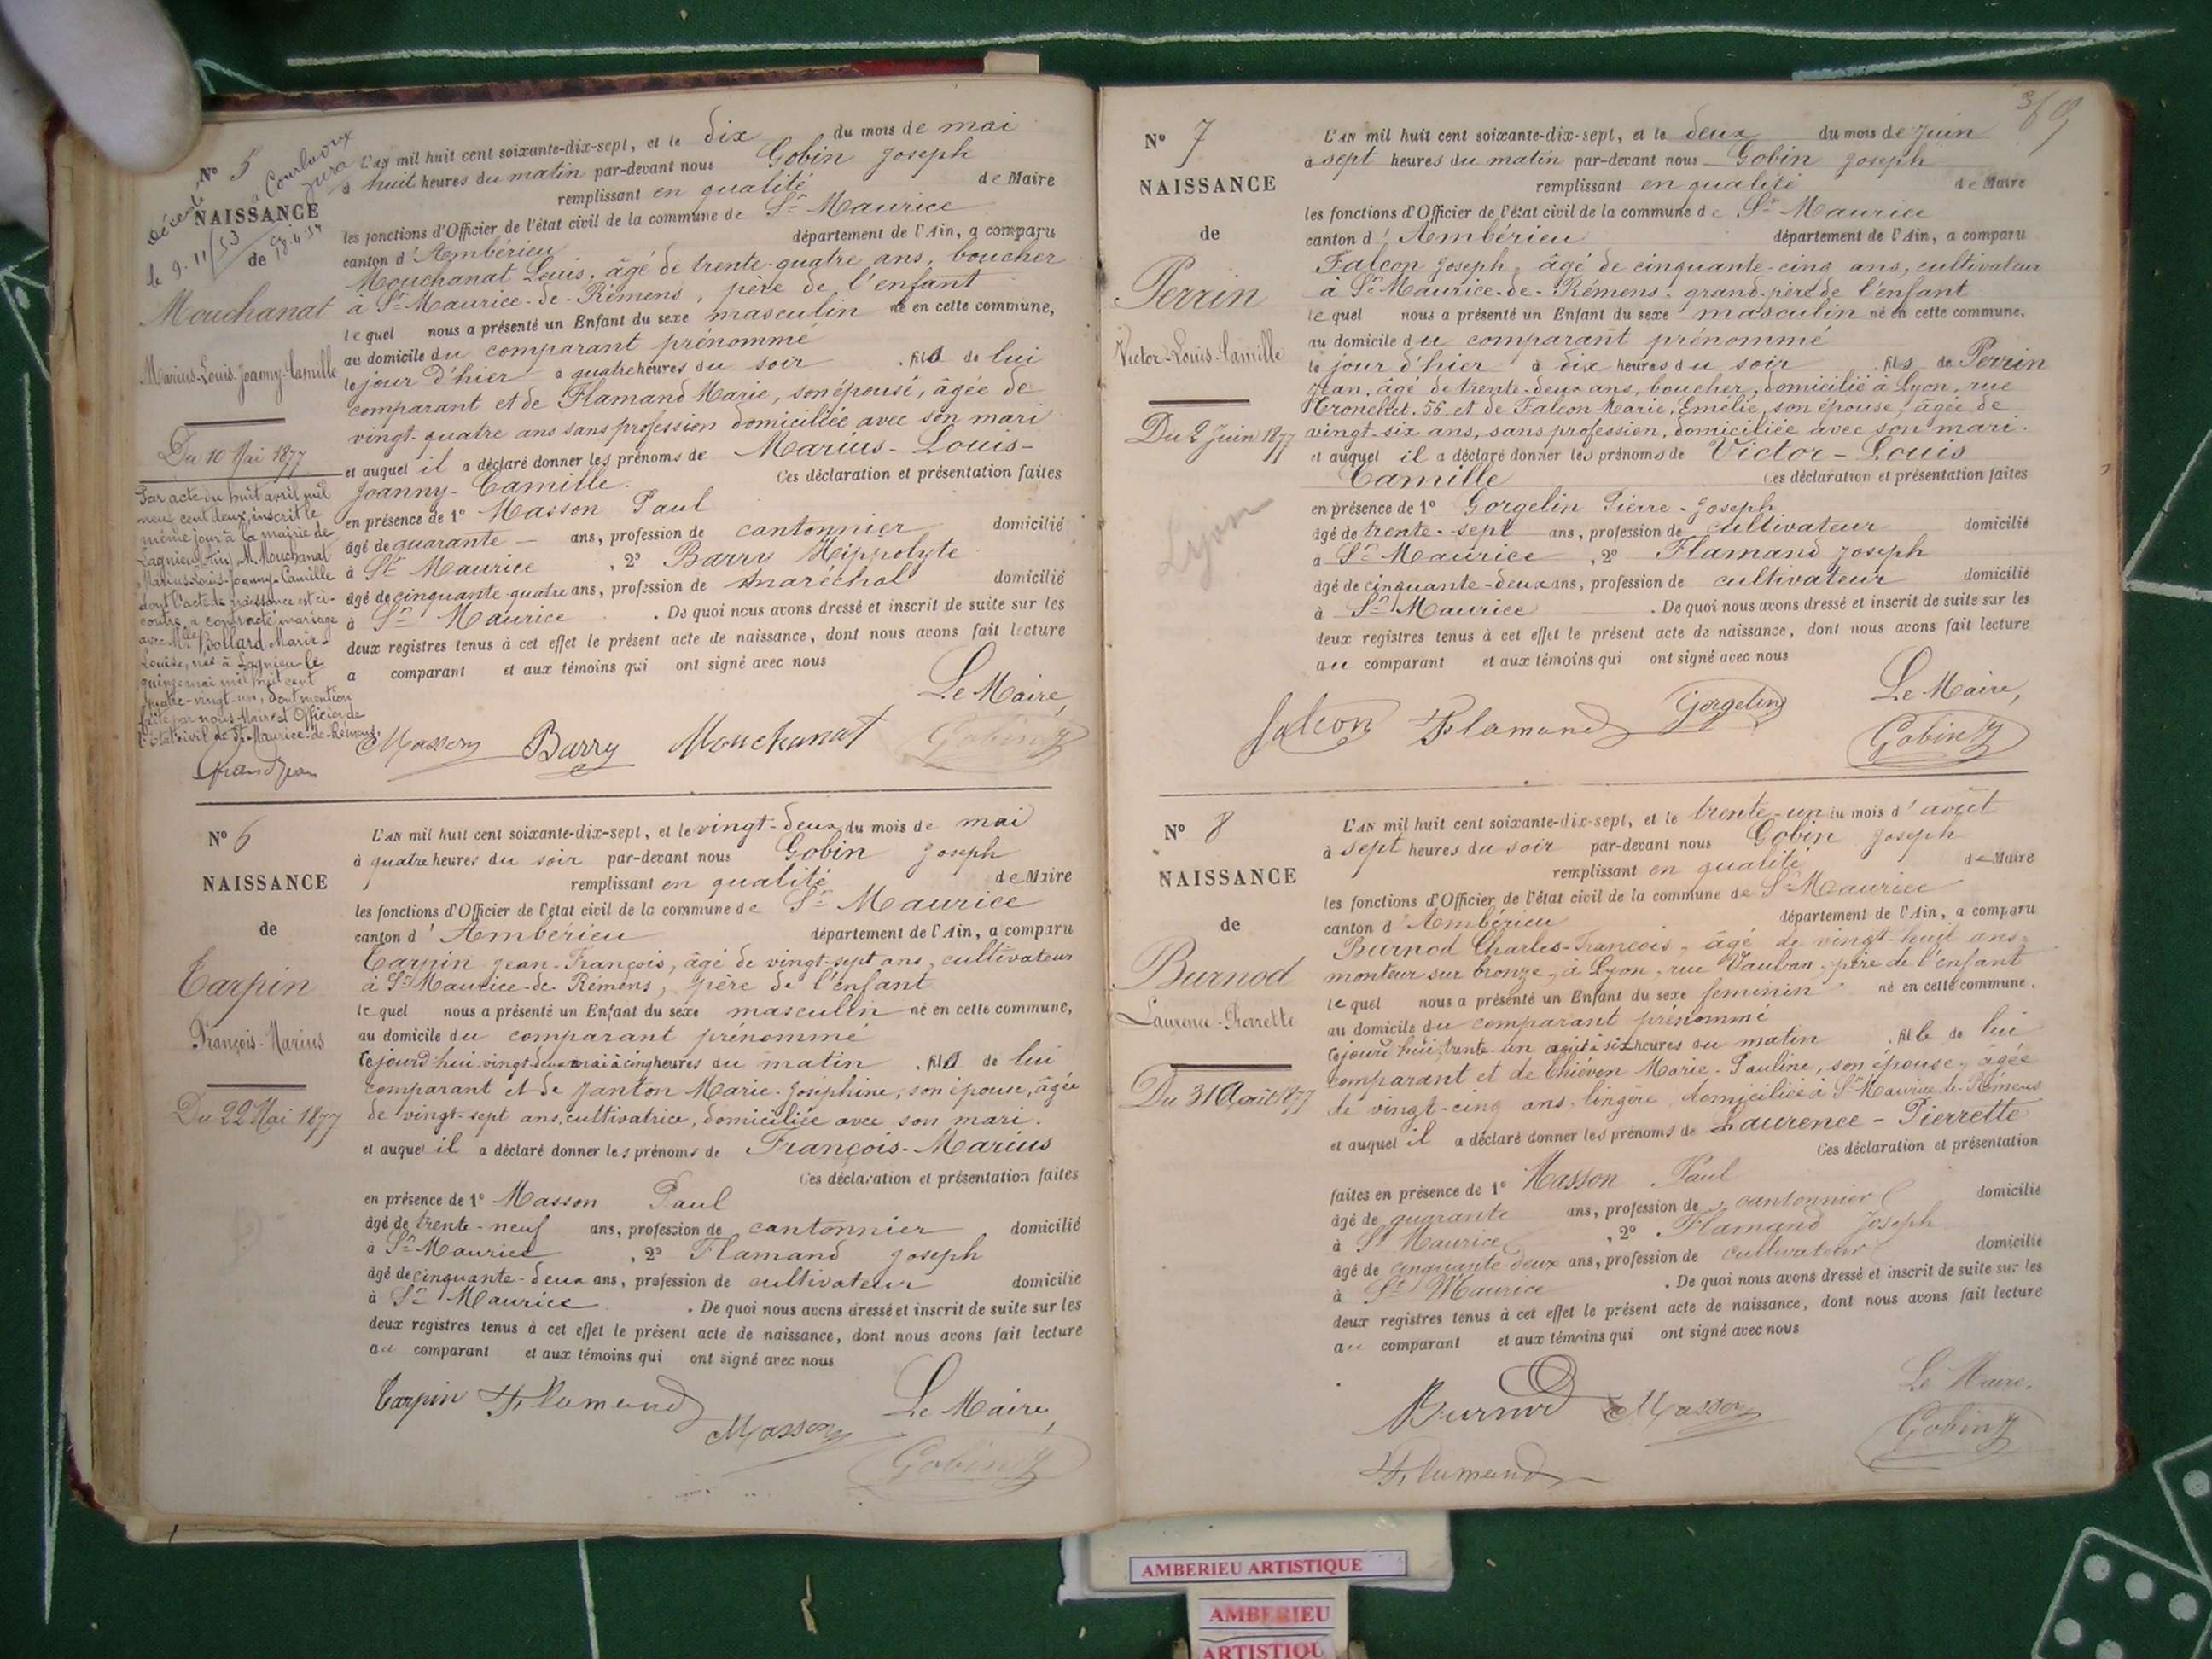 décédé à Courlaoux
Jura
le 9.11/53
N° 5
NAISSANCE
de
Mouchanat
Marius-Louis-Joanny-Camille
Du 10 Mai 1877
Par acte du huit avril mil
neuf cent deux, inscrit le
même jour à la mairie de
Lagnieu (Ain) M. Mouchanat
Marius-Louis-Joanny-Camille
dont l'acte de naissance est ci-
contre, a contracté mariage
avec Mlle Bollard Marie-
Louise, née à Lagnieu le
quinze mai mil huit cent
quatre-vingt-un, dont mention
faite par nous Maire et Officier de
l'Etat civil de St-Maurice-de-Rémens.
Grandjean
L'AN mil huit cent soixante-dix-sept, et le dix du mois de mai
à huit heures du matin par-devant nous Gobin Joseph
remplissant en qualité de Maire
les fonctions d'Officier de l'état civil de la commune de St Maurice
canton d'Ambérieu département de l'Ain, a comparu
Mouchanat Louis, âgé de trente-quatre ans, boucher
à St-Maurice-de-Rémens, père de l'enfant
lequel nous a présenté un Enfant du sexe masculin né en cette commune,
au domicile du comparant prénommé
le jour d'hier à quatre heures du soir . fils de lui
comparant et de Flamand Marie, son épouse, âgée de
vingt-quatre ans sans profession domiciliée avec son mari
et auquel il a déclaré donner les prénoms de Marius-Louis-
Joanny-Camille. Ces déclaration et présentation faites
en présence de 1° Masson Paul
âgé de quarante - ans, profession de cantonnier domicilié
à St Maurice , 2° Barry Hippolyte
âgé de cinquante-quatre ans, profession de maréchal domicilié
à St Maurice . De quoi nous avons dressé et inscrit de suite sur les
deux registres tenus à cet effet le présent acte de naissance, dont nous avons fait lecture
a comparant et aux témoins qui ont signé avec nous
Le Maire,
Masson Barry Mouchanat Gobin
N° 6
NAISSANCE
de
Tarpin
François-Marius
Du 22 Mai 1877
L'AN mil huit cent soixante-dix-sept, et le vingt-deux du mois de mai
à quatre heures du soir par-devant nous Gobin Joseph
remplissant en qualité de Maire
les fonctions d'Officier de l'état civil de la commune de St Maurice
canton d'Ambérieu département de l'Ain, a comparu
Tarpin Jean-François, âgé de vingt-sept ans, cultivateur
à St Maurice-de-Rémens, père de l'enfant
lequel nous a présenté un Enfant du sexe masculin né en cette commune,
au domicile du comparant prénommé
cejourd'hui vingt-deux mai à cinq heures du matin . fils de lui
comparant et de Janton Marie-Joséphine, son épouse, âgée
de vingt-sept ans, cultivatrice, domiciliée avec son mari.
et auquel il a déclaré donner les prénoms de François-Marius
Ces déclaration et présentation faites
en présence de 1° Masson Paul
âgé de trente-neuf ans, profession de cantonnier domicilié
à St Maurice , 2° Flamand Joseph
âgé de cinquante-deux ans, profession de cultivateur domicilié
à St Maurice . De quoi nous avons dressé et inscrit de suite sur les
deux registres tenus à cet effet le présent acte de naissance, dont nous avons fait lecture
au comparant et aux témoins qui ont signé avec nous
Tarpin Flamand Le Maire,
Masson
Gobin
N° 7
NAISSANCE
de
Perrin
Victor-Louis-Camille
Du 2 Juin 1877
Lyon
L'AN mil huit cent soixante-dix-sept, et le deux du mois de Juin
à sept heures du matin par-devant nous Gobin Joseph
remplissant en qualité de Maire
les fonctions d'Officier de l'état civil de la commune de St Maurice
canton d'Ambérieu département de l'Ain, a comparu
Falcon Joseph, âgé de cinquante-cinq ans, cultivateur
à St Maurice-de-Rémens, grand-père de l'enfant
lequel nous a présenté un Enfant du sexe masculin né en cette commune.
au domicile du comparant prénommé
le jour d'hier à dix heures du soir . fils de Perrin
Jean, âgé de trente-deux ans, boucher, domicilié à Lyon, rue
Tronchet, 56, et de Falcon Marie-Emélie, son épouse, âgée de
vingt-six ans, sans profession, domiciliée avec son mari.
et auquel il a déclaré donner les prénoms de Victor-Louis
Camille Ces déclaration et présentation faites
en présence de 1° Gorgelin Pierre-Joseph
âgé de trente-sept ans, profession de cultivateur domicilié
à St Maurice , 2° Flamand Joseph
âgé de cinquante-deux ans, profession de cultivateur domicilié
à St Maurice . De quoi nous avons dressé et inscrit de suite sur les
deux registres tenus à cet effet le présent acte de naissance, dont nous avons fait lecture
au comparant et aux témoins qui ont signé avec nous
Le Maire,
Falcon Flamand Gorgelin
Gobin
N° 8
NAISSANCE
de
Burnod
Laurence-Pierrette
Du 31 Août 1877
L'AN mil huit cent soixante-dix-sept, et le trente-un du mois d'août
à sept heures du soir par-devant nous Gobin Joseph
remplissant en qualité de Maire
les fonctions d'Officier de l'état civil de la commune de St Maurice
canton d'Ambérieu département de l'Ain, a comparu
Burnod Charles-François, âgé de vingt-huit ans,
monteur sur bronze, à Lyon, rue Vauban, père de l'enfant
lequel nous a présenté un Enfant du sexe féminin né en cette commune.
au domicile du comparant prénommé
cejourd'hui trente-un août à six heures du matin . fille de lui
comparant et de Thiévon Marie-Pauline, son épouse, âgée
de vingt-cinq ans, lingère, domiciliée à St Maurice-de-Rémens
et auquel il a déclaré donner les prénoms de Laurence-Pierrette
Ces déclaration et présentation
faites en présence de 1° Masson Paul
âgé de quarante ans, profession de cantonnier domicilié
à St Maurice , 2° Flamand Joseph
âgé de cinquante-deux ans, profession de cultivateur domicilié
à St Maurice . De quoi nous avons dressé et inscrit de suite sur les
deux registres tenus à cet effet le présent acte de naissance, dont nous avons fait lecture
au comparant et aux témoins qui ont signé avec nous
Le Maire.
Burnod Masson
Gobin
Flamand
AMBERIEU ARTISTIQUE
AMBERIEU
ARTISTIQU